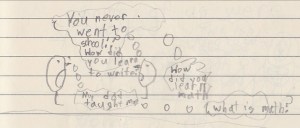 You never
went to
school!?
How did
you learn
to write?
My dad
taught me
How
did you
learn
math
what is math?